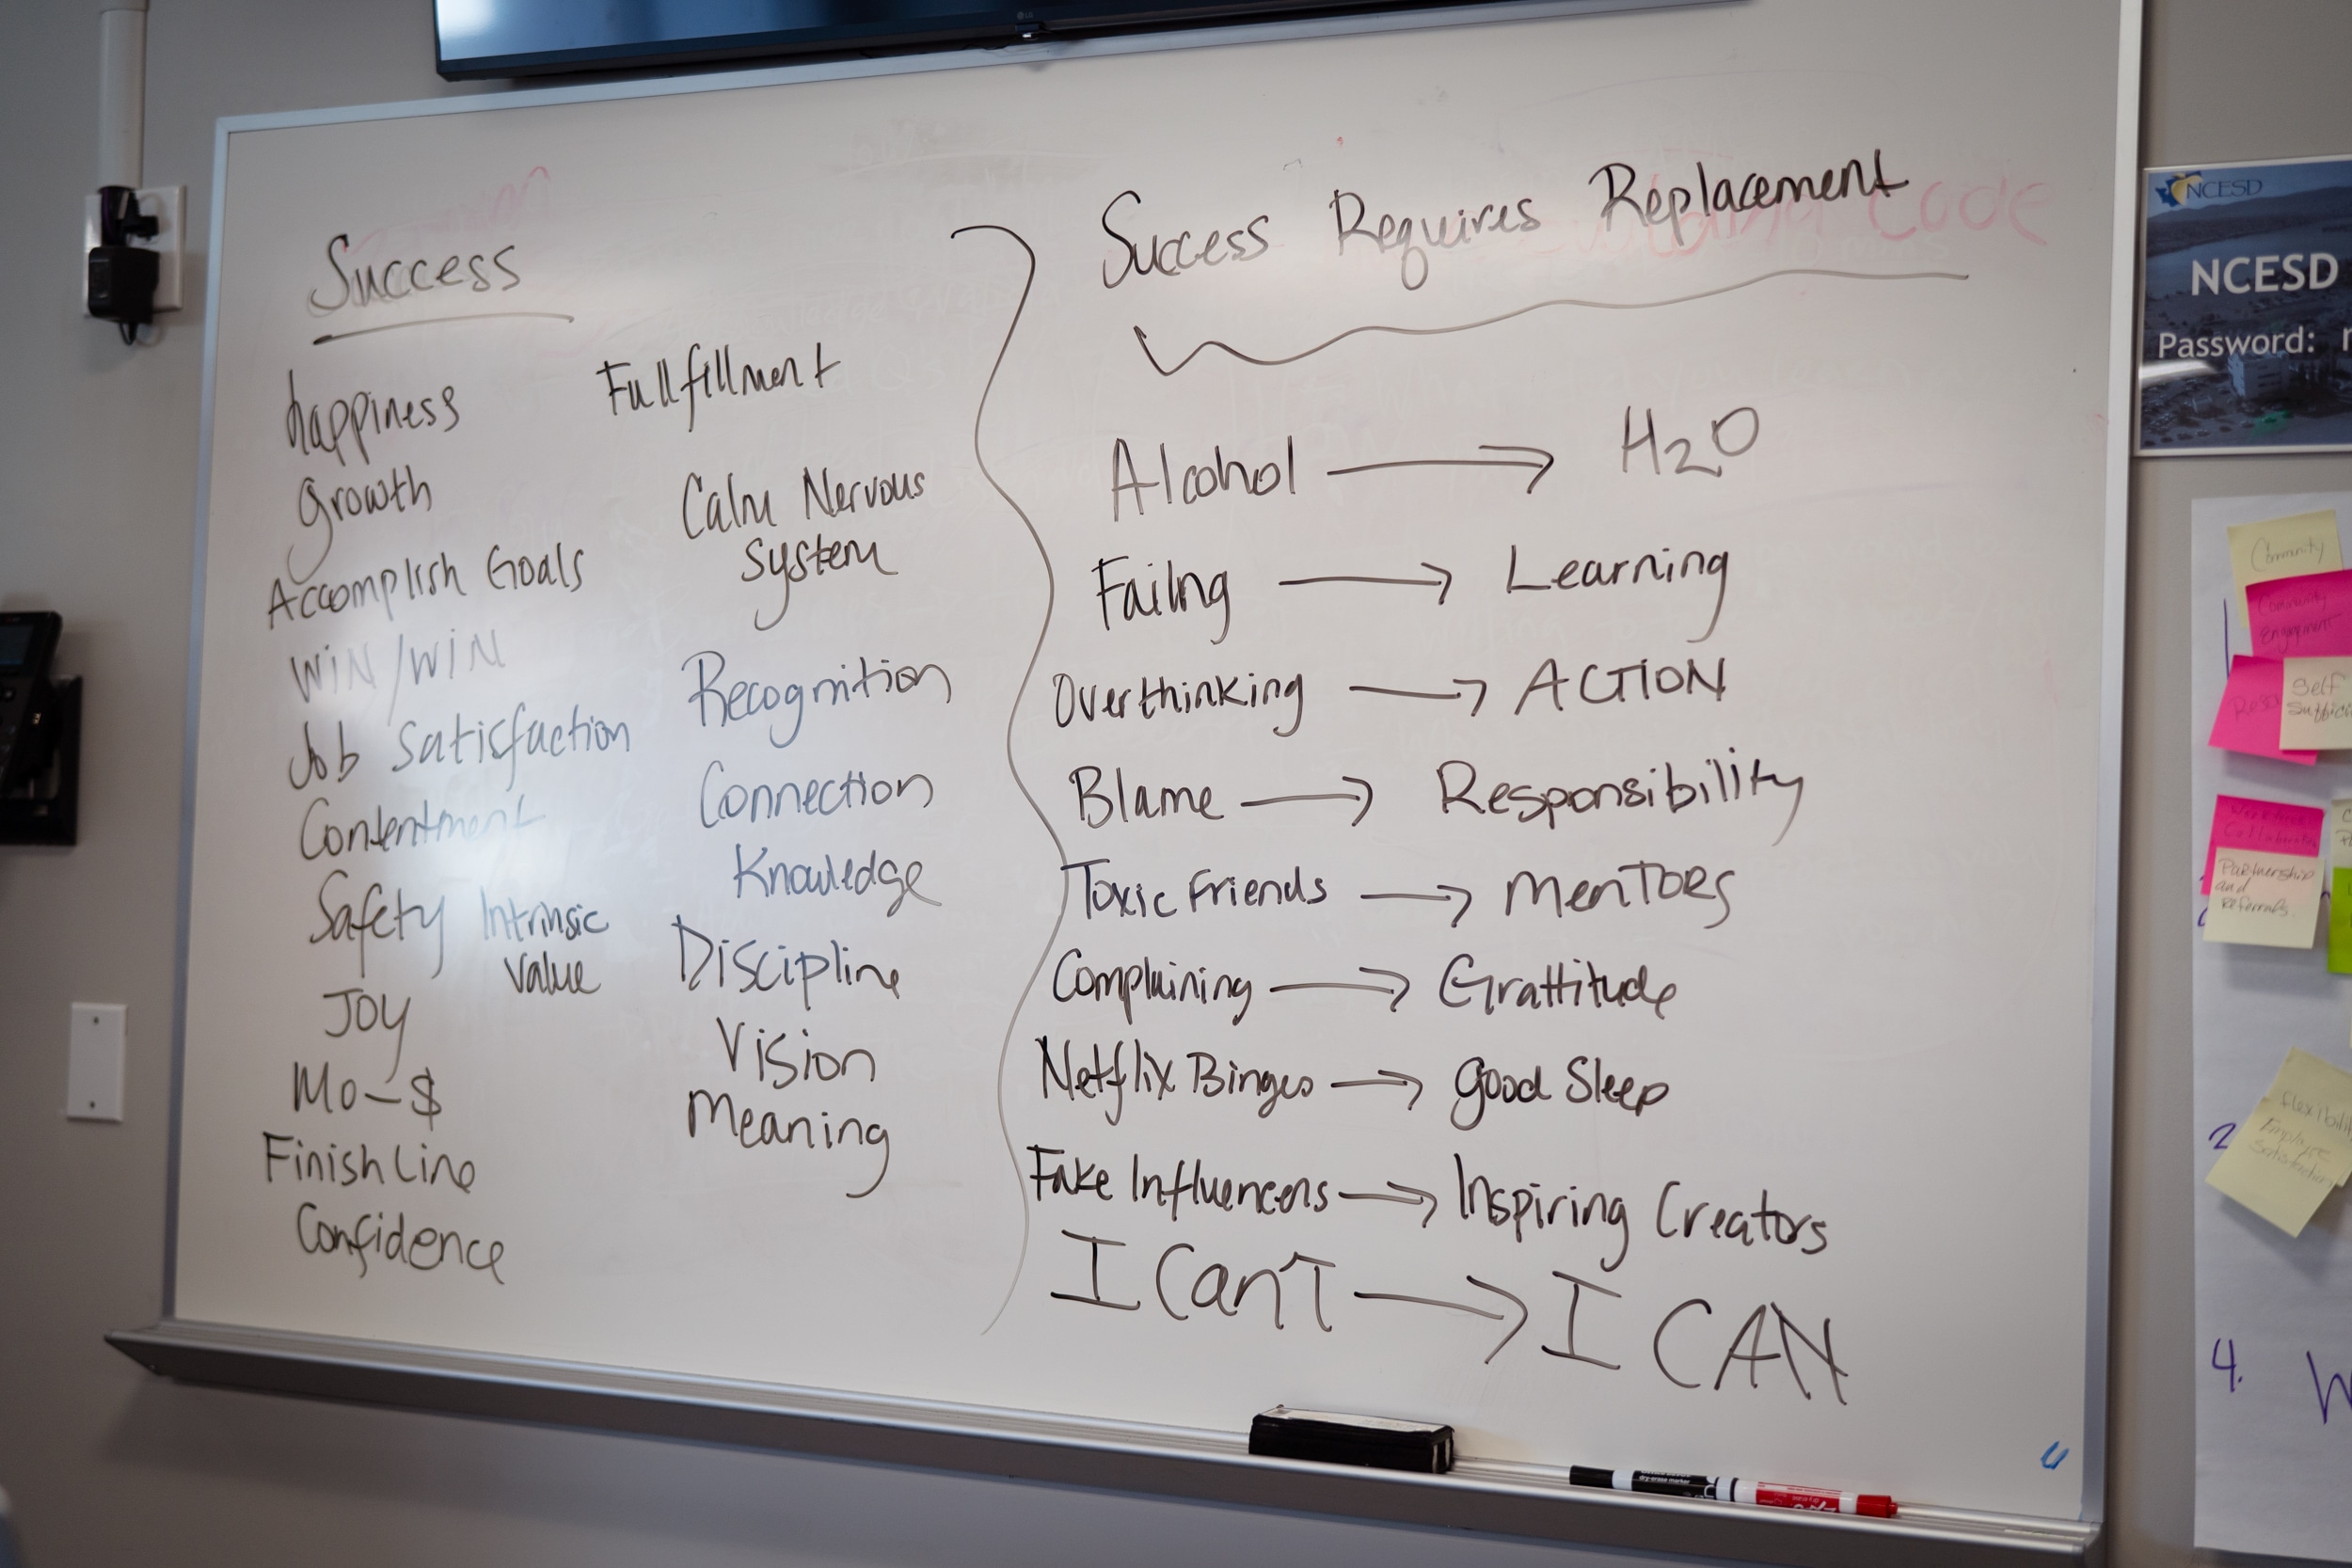 Success
happiness
Growth
Accomplish Goals
WiN/WiN
Job Satisfaction
Contentment
Safety
Intrinsic
Value
JOY
Mo-$
Finish Line
Confidence
Fullfillment
Calm Nervous
System
Recognition
Connection
Knowledge
Discipline
Vision
Meaning
Success Requires Replacement
Code
Alcohol → H2O
Failng → Learning
Overthinking → ACTION
Blame → Responsibility
Toxic Friends → MenTORS
Complaining → Grattitude
Netflix Binges → Good Sleep
Fake Influencers → Inspiring Creators
I Can'T → I CAN
LG
NCESD
NCESD
Password:
Community
Community
Engagement
Self
Partnership
and
Referrals
2
Employee
Satisfaction
4.